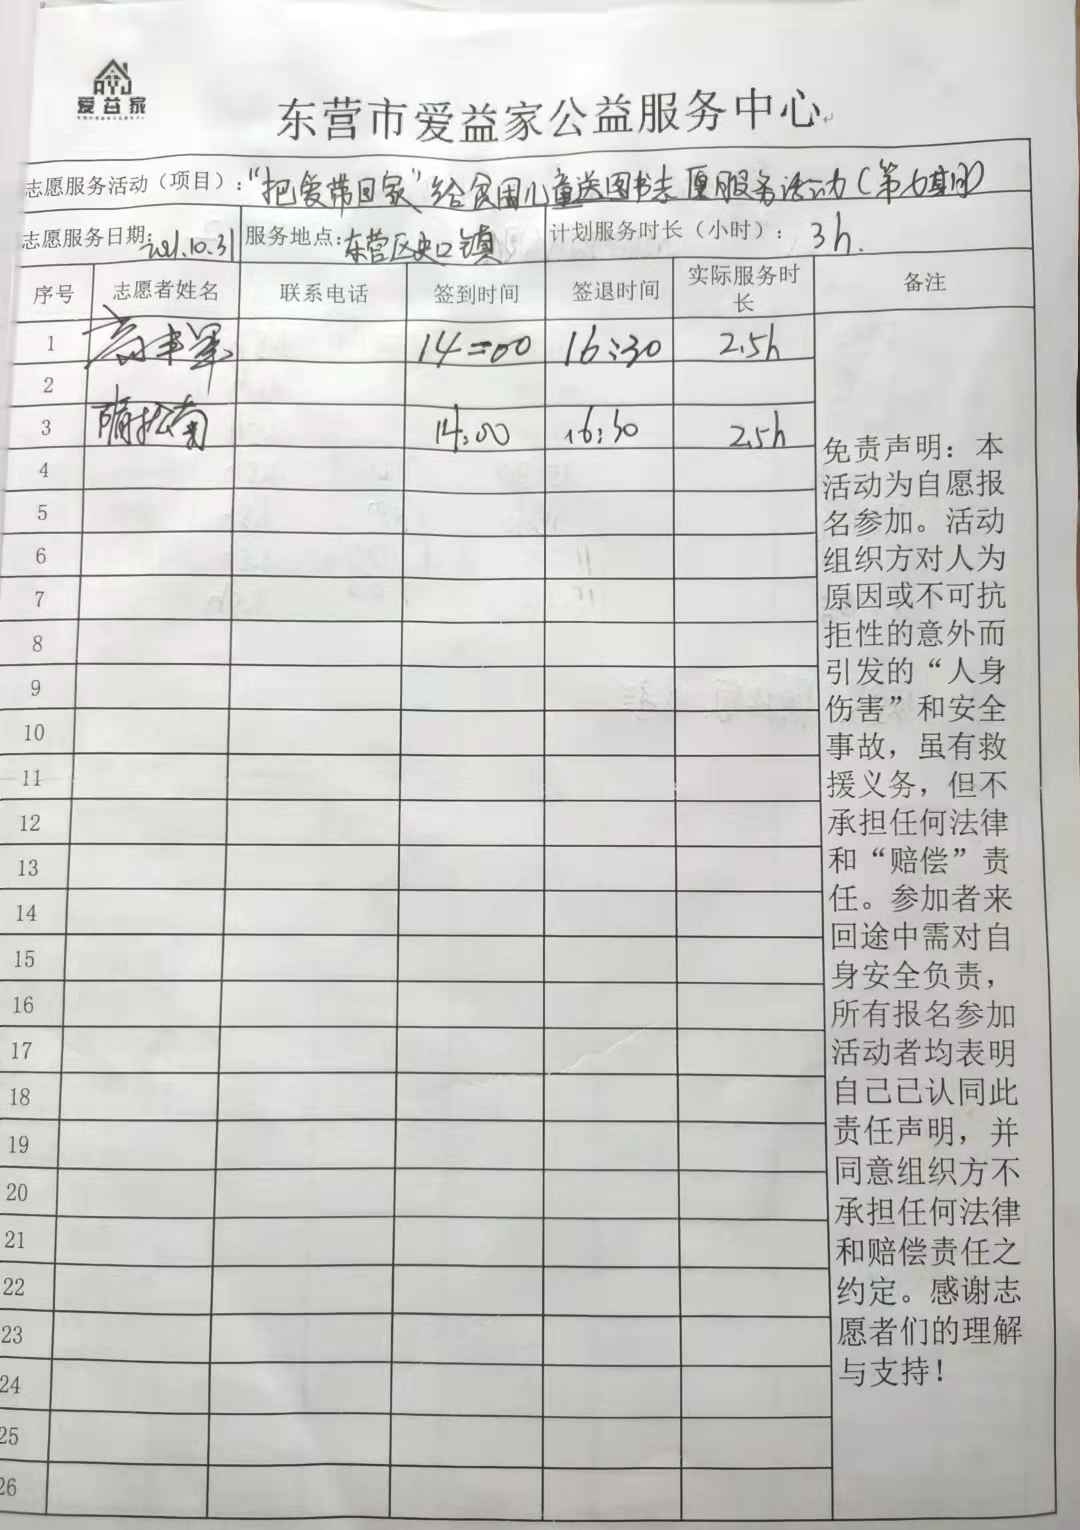 爱益家
东营市爱益家公益服务中心
志愿服务活动（项目）：“把爱带回家”给贫困儿童送图书志愿服务活动（第七期）
志愿服务日期：2021.10.31 服务地点：东营区史口镇 计划服务时长（小时）： 3h.
序号 志愿者姓名 联系电话 签到时间 签退时间 实际服务时长 备注
1 14:00 16:30 2.5h
2
3 隋松南 14:00 16:30 2.5h
4
5
6
7
8
9
10
11
12
13
14
15
16
17
18
19
20
21
22
23
24
25
26
免责声明：本
活动为自愿报
名参加。活动
组织方对人为
原因或不可抗
拒性的意外而
引发的“人身
伤害”和安全
事故，虽有救
援义务，但不
承担任何法律
和“赔偿”责
任。参加者来
回途中需对自
身安全负责，
所有报名参加
活动者均表明
自己已认同此
责任声明，并
同意组织方不
承担任何法律
和赔偿责任之
约定。感谢志
愿者们的理解
与支持！